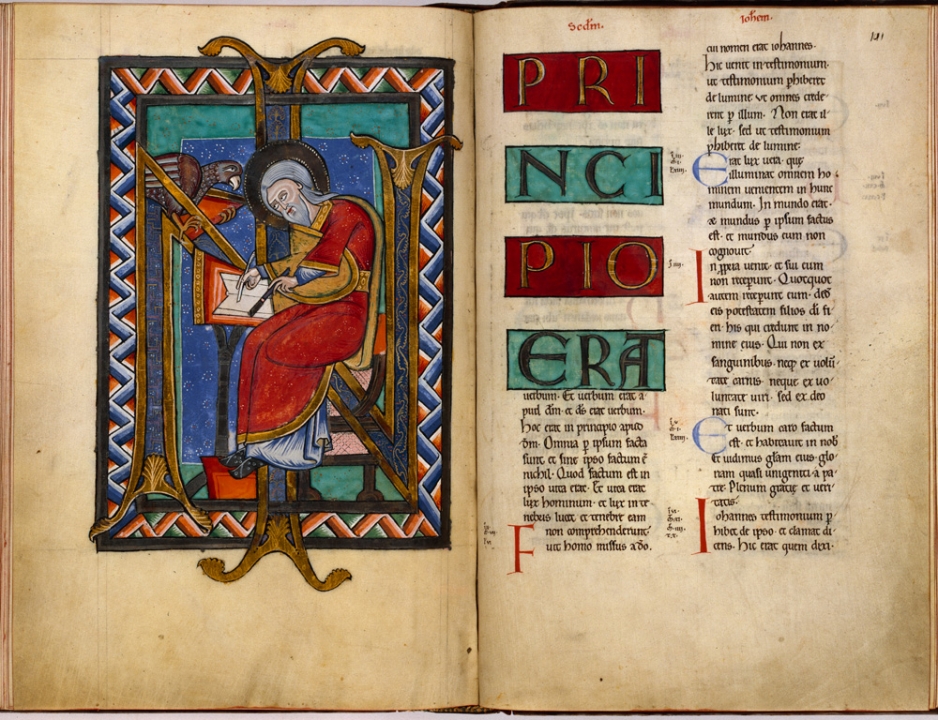 IN
Scdm.
Iohem.
PRI
NCI
PIO
ERAT
uerbum. Et uerbum erat a
pud dm. et ds erat uerbum.
hoc erat in principio apud
dm. Omnia p ipsum facta
sunt. et sine ipso factum e
nichil. Quod factum est in
ipso uita erat. Et uita erat
lux hominum. et lux in te
nebris lucet. et tenebre eam
non comprehenderunt.
Fuit homo missus a do.
cui nomen erat iohannes.
hic uenit in testimonium.
ut testimonium phiberet
de lumine. ut omnes crede
rent p illum. Non erat il
le lux. sed ut testimonium
phiberet de lumine.
Erat lux uera. que
illuminat omnem ho
minem uenientem in hunc
mundum. In mundo erat.
et mundus p ipsum factus
est. et mundus eum non
cognouit.
In ppria uenit. et sui eum
non receperunt. Quotquot
autem receperunt eum. ded
eis potestatem filios di fi
eri. his qui credunt in no
mine eius. Qui non ex
sanguinibus. neq ex uolu
tate carnis. neque ex uo
luntate uiri. sed ex deo
nati sunt.
Et uerbum caro factum
est. et habitauit in nob
Et uidimus gliam eius. glo
riam quasi unigeniti a pa
tre. Plenum gratie et ueri
tatis.
Iohannes testimonium p
hibet de ipso. et clamat di
cens. Hic erat quem dixi.